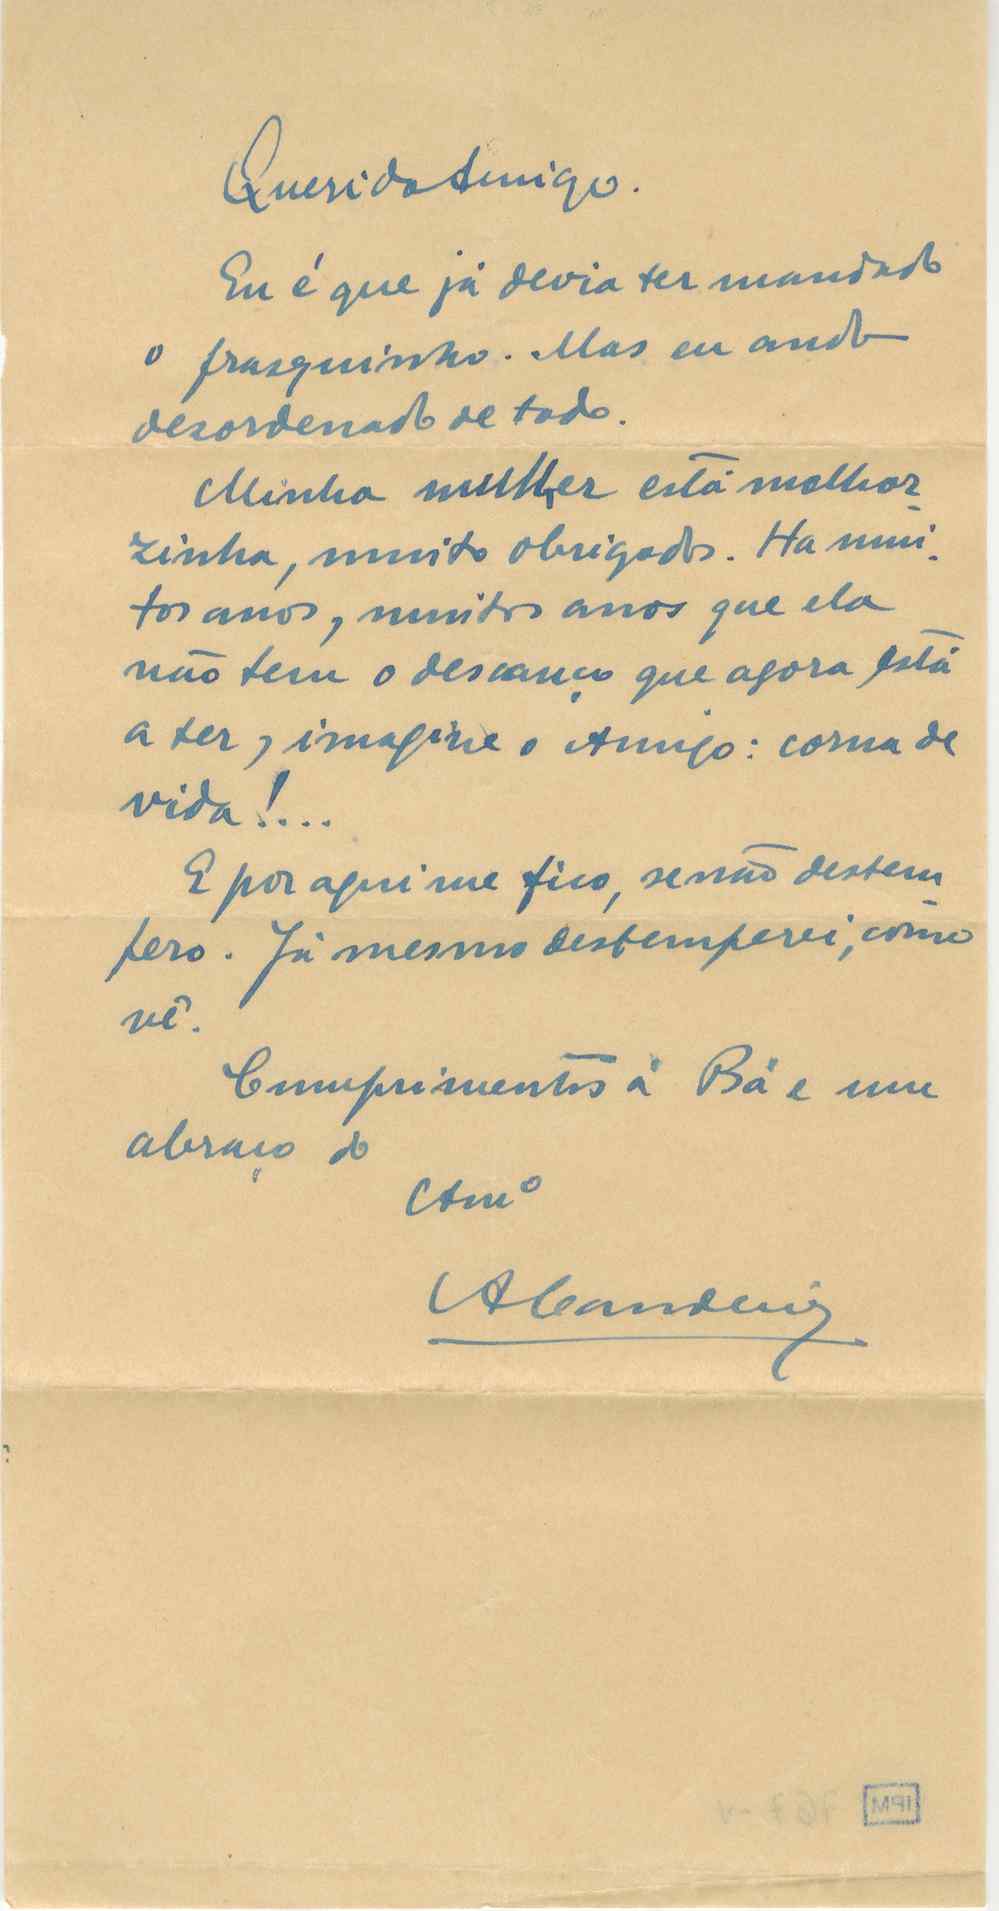 Querido Amigo.
Eu é que já devia ter mandado
o frasquinho. Mas eu ando
desordenado de todo.
Minha mulher está melhor
zinha, muito obrigado. Ha mui-
tos anos, muitos anos que ela
não tem o descanço que agora está
a ter, imagine o Amigo: corna de
vida!...
E por aqui me fico, senão destem
pero. Já mesmo destemperei, como
vê.
Cumprimentos á Bá e um
abraço do
Amº
ACandeias
IPM